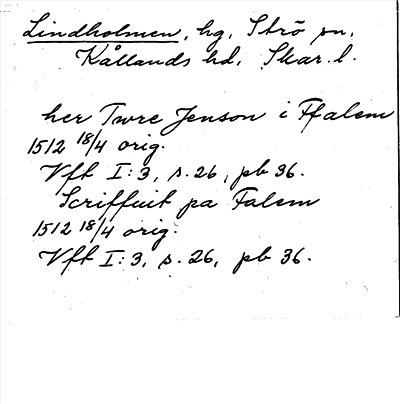 Lindholmen, hg, Strö sn,
Kållands hd, Skar. l.
her Twre Jenson i Ffalem
1512 18/4 orig.
Vfk I:3, s. 26, pb 36.
Scriffuit pa Falem
1512 18/4 orig.
Vfk I:3, s. 26, pb 36.